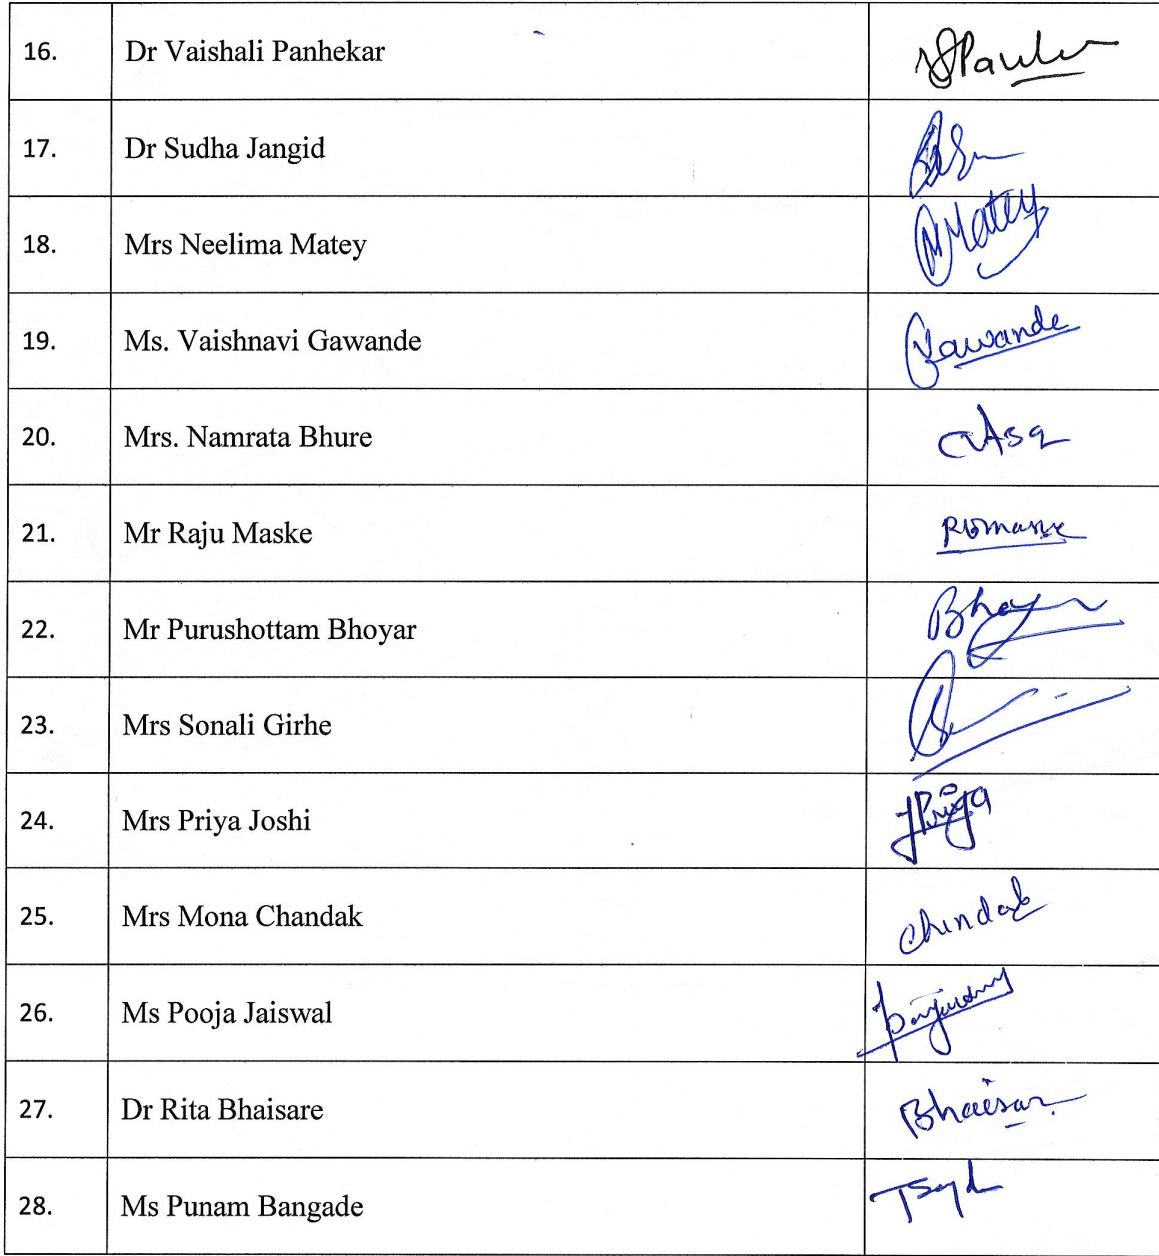 16. Dr Vaishali Panhekar
17. Dr Sudha Jangid
18. Mrs Neelima Matey Matey
19. Ms. Vaishnavi Gawande Gawande
20. Mrs. Namrata Bhure
21. Mr Raju Maske
22. Mr Purushottam Bhoyar
23. Mrs Sonali Girhe
24. Mrs Priya Joshi JPriya
25. Mrs Mona Chandak
26. Ms Pooja Jaiswal
27. Dr Rita Bhaisare
28. Ms Punam Bangade